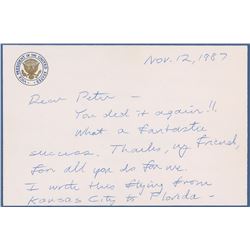 Nov. 12, 1987
Dear Peter -
You did it again!!
What a fantastic
success. Thanks, my friend,
for all you do for me.
I wrote this flying from
Kansas City to Florida -